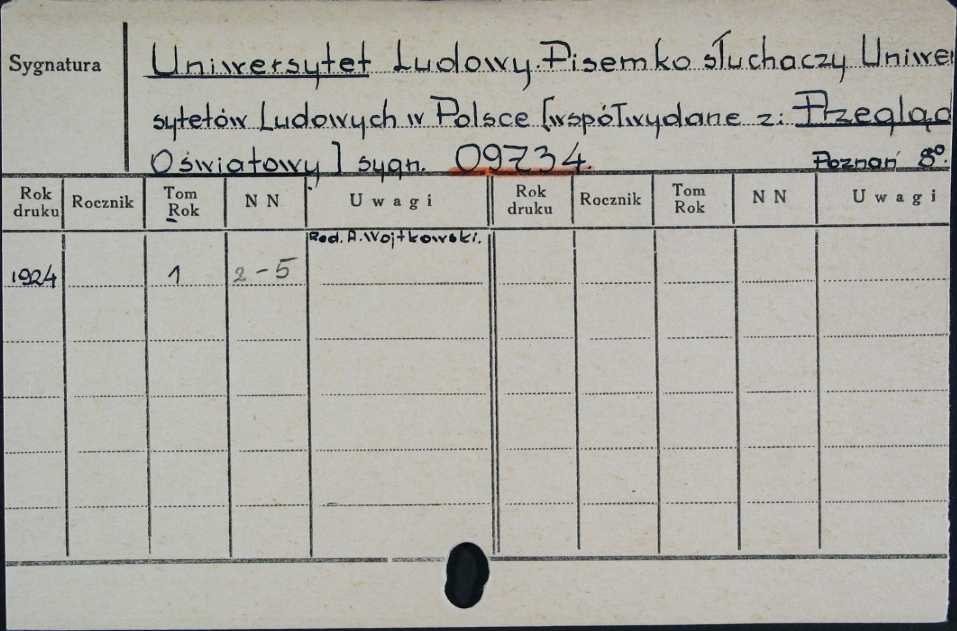 Sygnatura
Uniwersytet Ludowy. Pisemko słuchaczy Uniwer
sytetów Ludowych w Polsce [współwydane z: Przegląd
Oświatowy] sygn. 09734.
Poznań 8°.
Rok druku Rocznik Tom Rok N N Uwagi Rok druku Rocznik Tom Rok N N Uwagi
Red. A. Wojtkowski.
1924 1 2-5